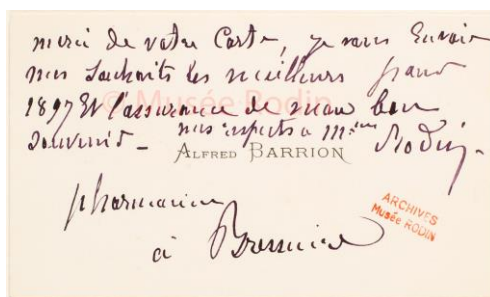 merci de votre Carte, je vous Envoie
mes souhaits les meilleurs pour
1897 Et l'assurance de mon bon
souvenir_ mes respects a Mme Rodin.
ALFRED BARRION
pharmacien
à Bressuire
© Musée Rodin
ARCHIVES
Musée RODIN